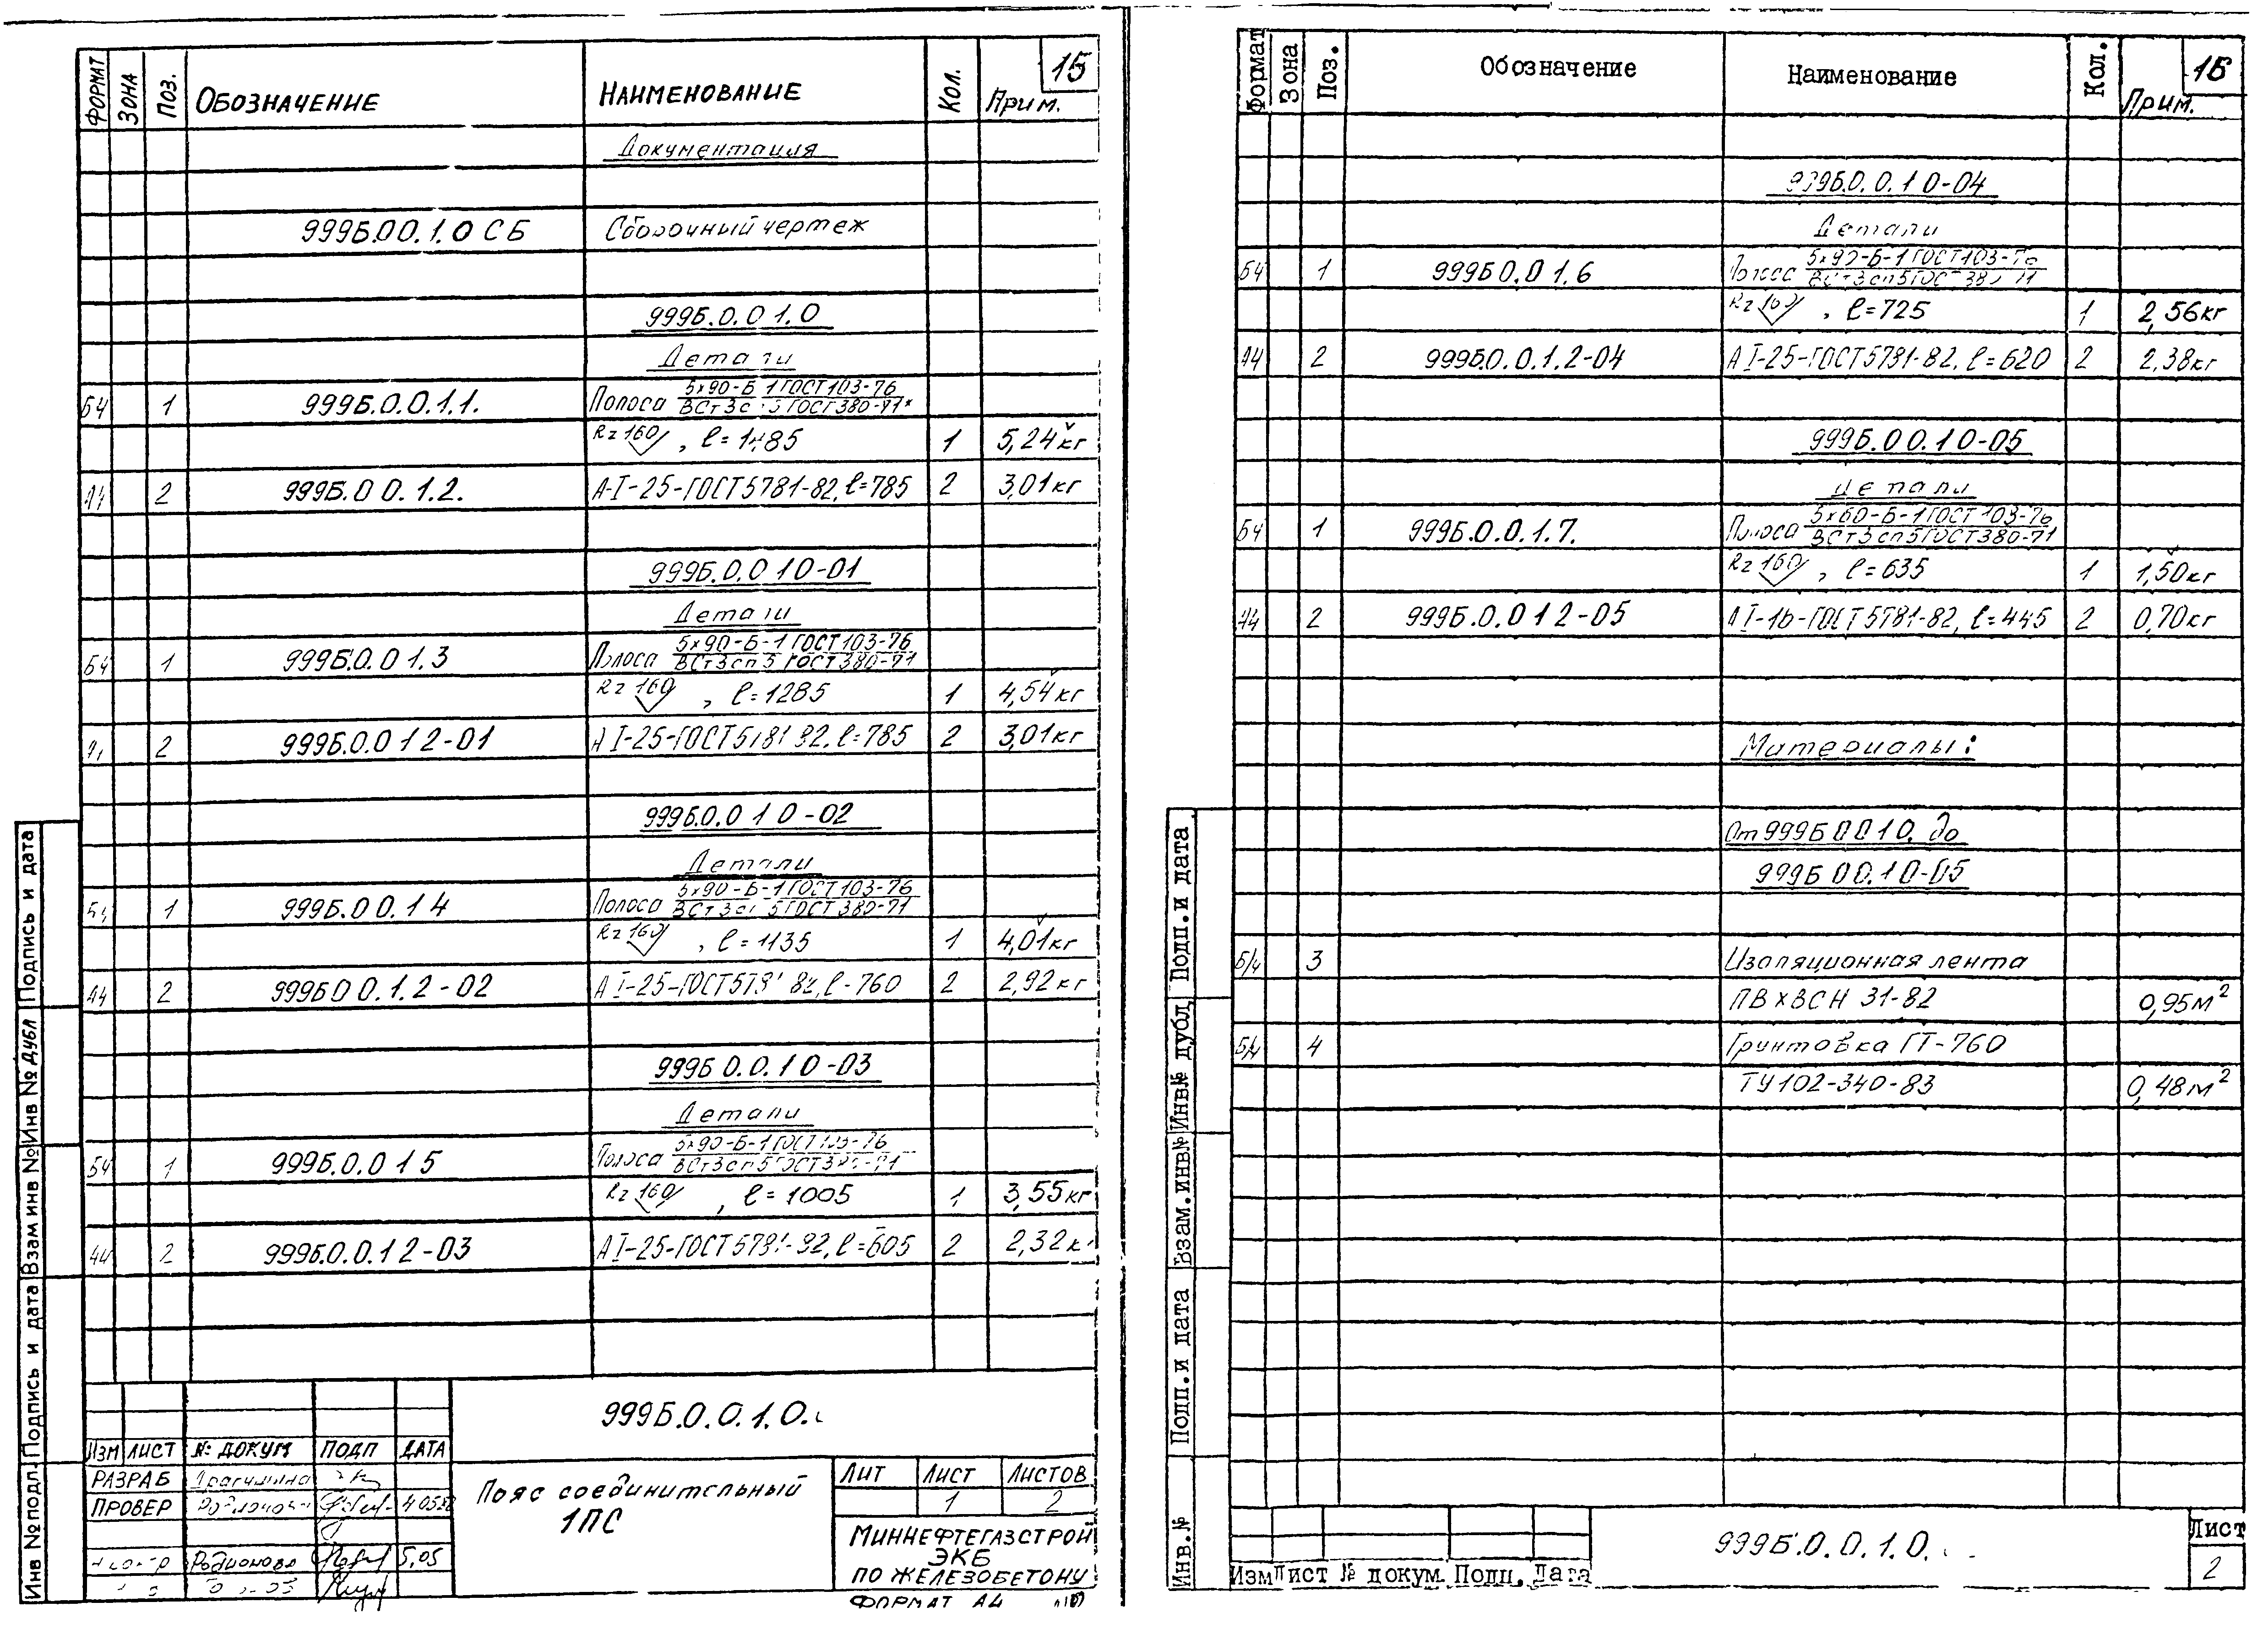 15
ФОРМАТ ЗОНА ПОЗ. ОБОЗНАЧЕНИЕ НАИМЕНОВАНИЕ КОЛ. Прим.
Документация
999Б.0 0.1.0 СБ Сборочный чертеж
999Б.0.0 1.0
Детали
БЧ 1 999Б.0.0.1.1. Полоса 5х90-Б 1 ГОСТ 103-76
ВСт3с 5 ГОСТ 380-71*
Rz 160, ℓ=1485 1 5,24кг
А4 2 999Б.0 0.1.2. А-I-25-ГОСТ 5781-82, ℓ=785 2 3,01кг
999Б.0.0 1 0-01
Детали
БЧ 1 999Б.0.0 1.3 Полоса 5х90-Б-1 ГОСТ 103-76
ВСт3сп5 ГОСТ 380-71
Rz 160, ℓ=1285 1 4,54кг
2 999Б.0.0 1 2-01 А I-25-ГОСТ 5781 82, ℓ=785 2 3,01кг
999Б.0.0 1 0-02
Детали
БЧ 1 999Б.0 0.1 4 Полоса 5х90-Б-1 ГОСТ 103-76
ВСт3с 5 ГОСТ 380-71
Rz 160, ℓ=1135 1 4,01кг
А4 2 999Б 0 0.1.2-02 А I-25-ГОСТ 578 82, ℓ-760 2 2,92кг
999Б 0.0.1 0-03
Детали
БЧ 1 999Б.0.0 1 5 Полоса 5х90-Б-1 ГОСТ 103-76
ВСт3сп5 ГОСТ 380-71
Rz 160, ℓ=1005 1 3,55кг
А4 2 999Б.0.0.1 2-03 А I-25-ГОСТ 578-82, ℓ=605 2 2,32к
Инв № подл. Подпись и дата Взам инв № Инв № дубл Подпись и дата
999Б.0.0.1.0.
ИЗМ ЛИСТ № ДОКУМ ПОДП ДАТА
РАЗРАБ
ПРОВЕР 4 05
Родионова 5,05
Пояс соединительный
1ПС
ЛИТ ЛИСТ ЛИСТОВ
1 2
МИННЕФТЕГАЗСТРОЙ
ЭКБ
ПО ЖЕЛЕЗОБЕТОНУ
ФОРМАТ А4
16
Формат Зона Поз. Обозначение Наименование Кол. Прим.
999Б.0.0.1 0-04
Детали
БЧ 1 999Б 0.0 1.6 Полоса 5х90-Б-1 ГОСТ 103-76
ВСт3сп5 ГОСТ 380-71
Rz 160, ℓ=725 1 2,56кг
А4 2 999Б.0.0.1.2-04 А I-25-ГОСТ 5781-82, ℓ=620 2 2,38кг
999Б.0 0.1 0-05
Детали
БЧ 1 999Б.0.0.1.7. Полоса 5х60-Б-1 ГОСТ 103-76
ВСт3сп5 ГОСТ 380-71
Rz 160, ℓ=635 1 1,50кг
А4 2 999Б.0.0 1 2-05 А I-16-ГОСТ 5781-82, ℓ=445 2 0,70кг
Материалы:
От 999Б 0 0 1 0. до
999Б 0 0.1 0-05
Б/ч 3 Изоляционная лента
ПВХ ВСН 31-82 0,95м²
Б/ч 4 Грунтовка ГТ-760
ТУ 102-340-83 0,48м²
Инв.№ Подп.и дата Взам.инв№ Инв№ дубл Подп.и дата
999Б.0.0.1.0.
Изм Лист № докум. Подп. Дата
Лист
2